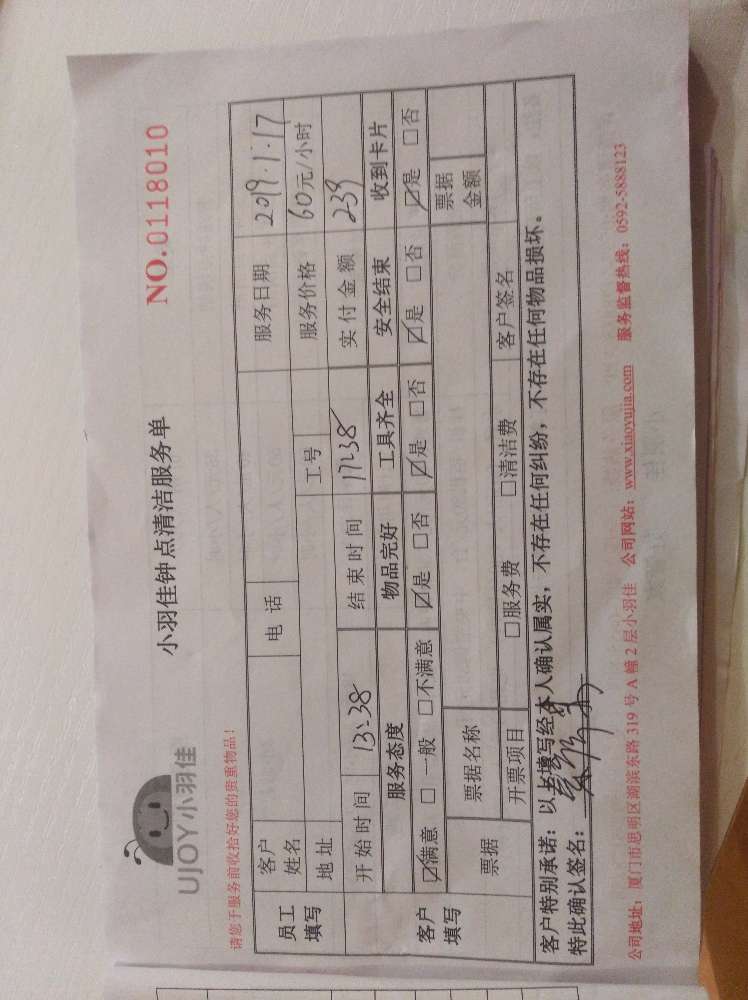 UJOY小羽佳
小羽佳钟点清洁服务单
NO.0118010
请您于服务前收拾好您的贵重物品！
员工填写 客户姓名 电话 服务日期 2019.1.17
地址 工号 服务价格 60元/小时
开始时间 13:38 结束时间 17:38 实付金额 239
客户填写 服务态度 物品完好 工具齐全 安全结束 收到卡片
☑满意 □一般 □不满意 ☑是 □否 ☑是 □否 ☑是 □否 ☑是 □否
票据 票据名称 票据金额
开票项目 □服务费 □清洁费 客户签名
客户特别承诺：以上填写经本人确认属实，不存在任何纠纷，不存在任何物品损坏。
特此确认签名：
公司地址：厦门市思明区湖滨东路319号A幢2层小羽佳 公司网站：www.xiaoyujia.com 服务监督热线：0592-5888123